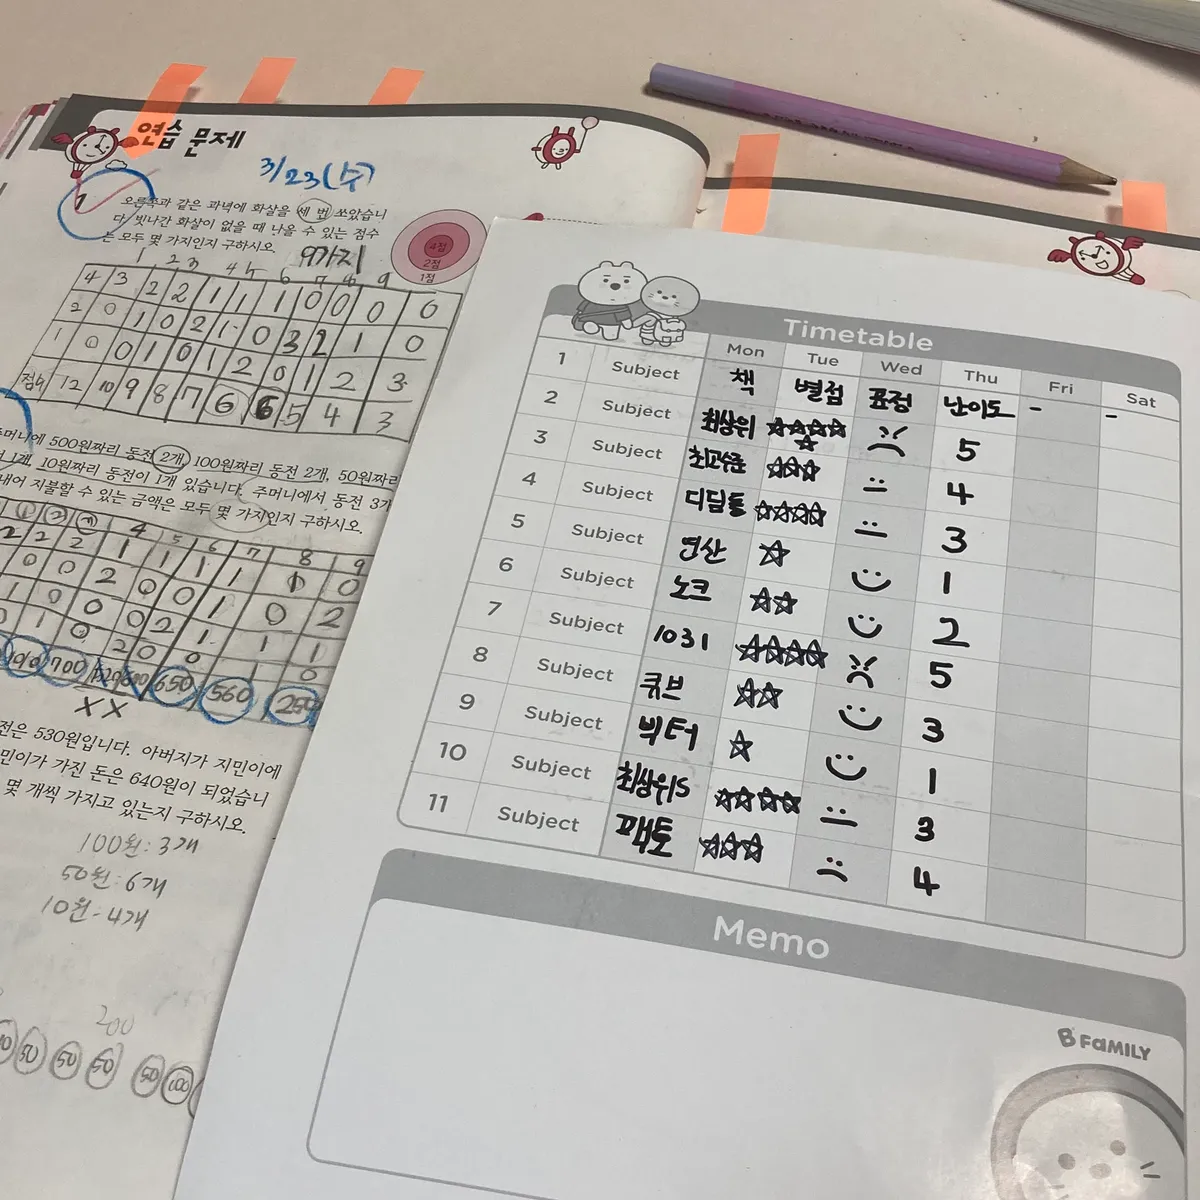 연습 문제
3/23(수)
1
오른쪽과 같은 과녁에 화살을 세 번 쏘았습니
다. 빗나간 화살이 없을 때 나올 수 있는 점수
는 모두 몇 가지인지 구하시오.
9가지
4점
2점
1점
1 2 3 4 5 6 7 8 9
4 3 2 2 1 1 1 0 0 0 0
2 0 1 0 2 1 0 3 2 1 0
1 0 0 1 0 1 2 0 1 2 3
점수 12 10 9 8 7 6 6 5 4 3
주머니에 500원짜리 동전 2개, 100원짜리 동전 2개, 50원짜리
1개, 10원짜리 동전이 1개 있습니다. 주머니에서 동전 3개
내어 지불할 수 있는 금액은 모두 몇 가지인지 구하시오.
① ② ③ 4 5 6 7 8 9
2 2 2 1 1 1 1 0 0
700 650 560 250
X X
전은 530원입니다. 아버지가 지민이에
민이가 가진 돈은 640원이 되었습니
몇 개씩 가지고 있는지 구하시오.
100원: 3개
50원: 6개
10원- 4개
200
50 50 50 50 100
Timetable
Mon Tue Wed Thu Fri Sat
1 Subject 책 별점 표정 난이도 - -
2 Subject 최상위 ☆☆☆☆☆ 5
3 Subject 최고수준 ☆☆☆ 4
4 Subject 디딤돌 ☆☆☆☆ 3
5 Subject 연산 ☆ 1
6 Subject 노크 ☆☆ 2
7 Subject 1031 ☆☆☆☆☆ 5
8 Subject 큐브 ☆☆ 3
9 Subject 빅터 ☆ 1
10 Subject 최상위S ☆☆☆☆ 3
11 Subject 팩토 ☆☆☆ 4
Memo
B FaMILY